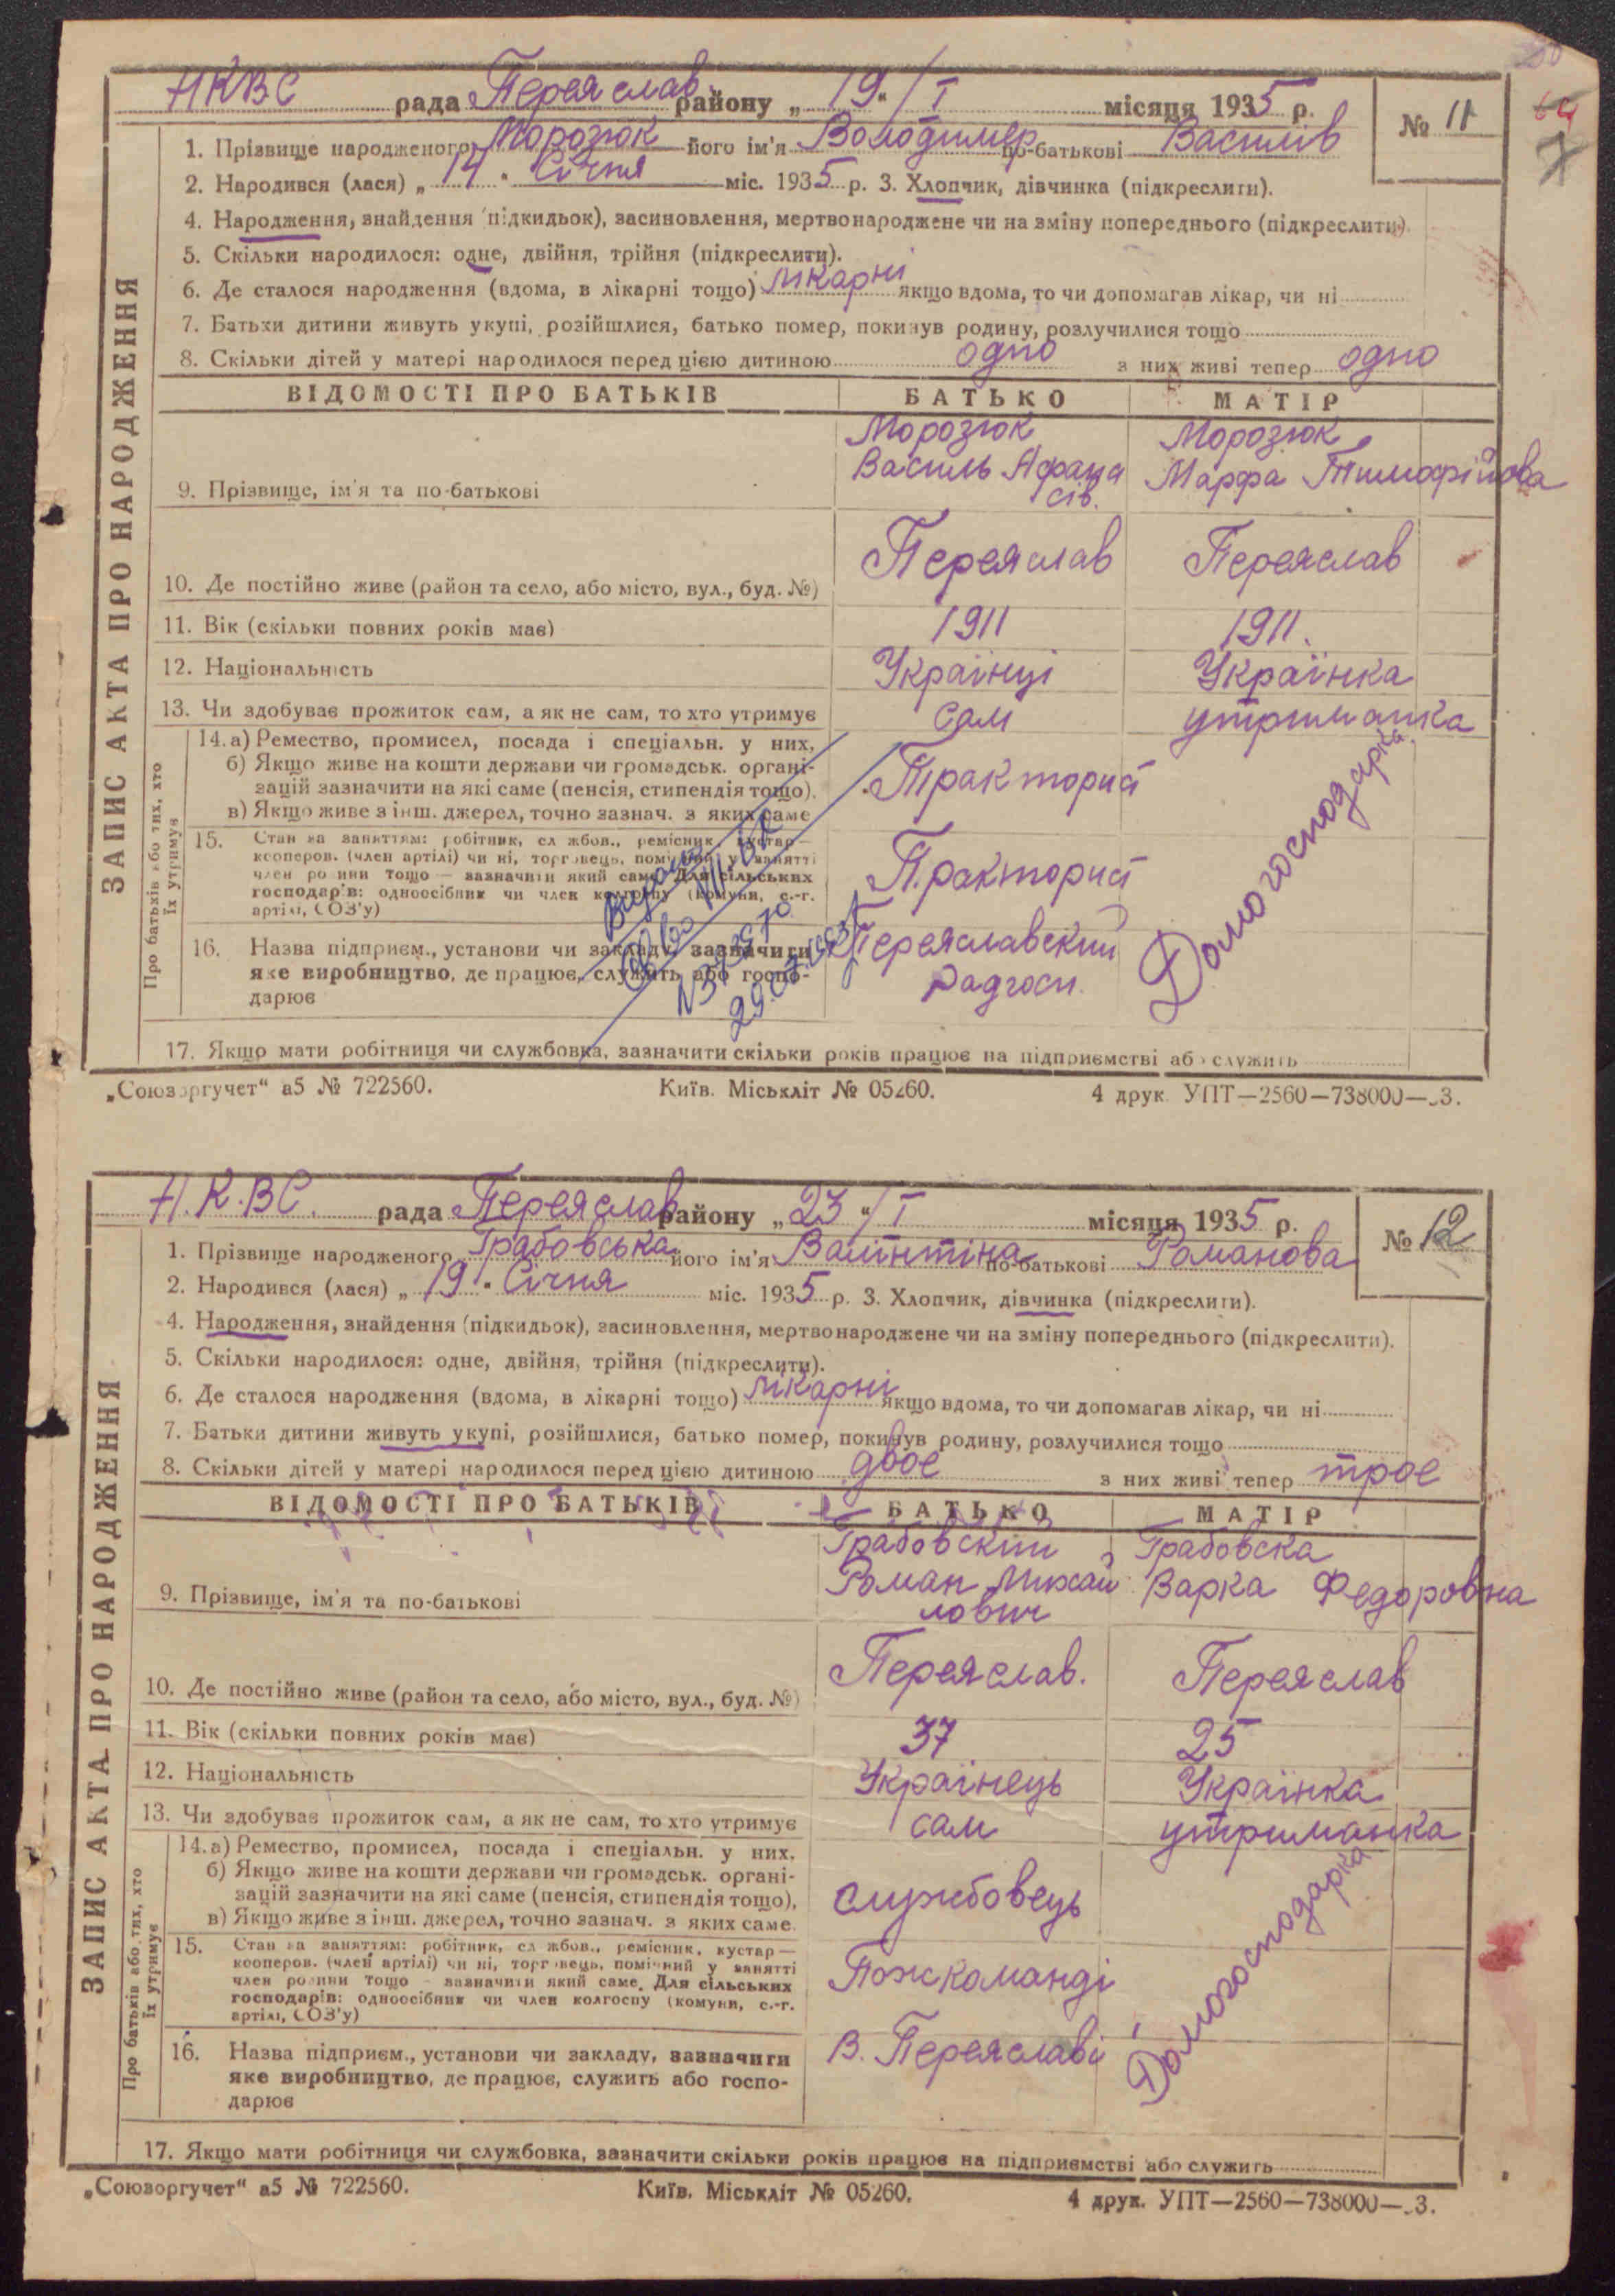 НКВС рада Переяслав району „ 19 “ / І місяця 1935 р.
№ 11
1. Прізвище народженого Морозюк його ім'я Володимер по-батькові Василів
2. Народився (лася) „ 14 “ Січня міс. 1935 р. 3. Хлопчик, дівчинка (підкреслити).
4. Народження, знайдення (підкидьок), засиновлення, мертвонароджене чи на зміну попереднього (підкреслити).
5. Скільки народилося: одне, двійня, трійня (підкреслити).
6. Де сталося народження (вдома, в лікарні тощо) лікарні якщо вдома, то чи допомагав лікар, чи ні
7. Батьки дитини живуть укупі, розійшлися, батько помер, покинув родину, розлучилися тощо
8. Скільки дітей у матері народилося перед цією дитиною одно з них живі тепер одно
ВІДОМОСТІ ПРО БАТЬКІВ БАТЬКО МАТІР
9. Прізвище, ім'я та по-батькові Морозюк Василь Афана сів. Морозюк Марфа Тимофійова
10. Де постійно живе (район та село, або місто, вул., буд. №) Переяслав Переяслав
11. Вік (скільки повних років має) 1911 1911.
12. Національність Українці Українка
13. Чи здобуває прожиток сам, а як не сам, то хто утримує сам утриманка
14. а) Ремество, промисел, посада і спеціальн. у них, Тракторист
б) Якщо живе на кошти держави чи громадськ. органі-
зацій зазначити на які саме (пенсія, стипендія тощо),
в) Якщо живе з інш. джерел, точно зазнач. з яких саме
15. Стан за заняттям: робітник, службов., ремісник, кустар— Тракторист
кооперов. (член артілі) чи ні, торговець, помічний у занятті
член родини тощо — зазначити який саме. Для сільських
господарів: одноосібник чи член колгоспу (комуни, с.-г.
артілі, СОЗ'у)
16. Назва підприєм., установи чи закладу, зазначити Переяславский
яке виробництво, де працює, служить або госпо- Радгосп.
дарює
Домогосподарка
17. Якщо мати робітниця чи службовка, зазначити скільки років працює на підприємстві або служить
ЗАПИС АКТА ПРО НАРОДЖЕННЯ
Про батьків або тих, хто
їх утримує
„Союзоргучет“ а5 № 722560. Київ. Міськліт № 05260. 4 друк. УПТ—2560—738000—33.
Н.К.ВС. рада Переяслав району „ 23 “ / І місяця 1935 р.
№ 12
1. Прізвище народженого Грабовська його ім'я Валінтіна по-батькові Романова
2. Народився (лася) „ 19 “ Січня міс. 1935 р. 3. Хлопчик, дівчинка (підкреслити).
4. Народження, знайдення (підкидьок), засиновлення, мертвонароджене чи на зміну попереднього (підкреслити).
5. Скільки народилося: одне, двійня, трійня (підкреслити).
6. Де сталося народження (вдома, в лікарні тощо) лікарні якщо вдома, то чи допомагав лікар, чи ні
7. Батьки дитини живуть укупі, розійшлися, батько помер, покинув родину, розлучилися тощо
8. Скільки дітей у матері народилося перед цією дитиною двоє з них живі тепер троє
ВІДОМОСТІ ПРО БАТЬКІВ БАТЬКО МАТІР
9. Прізвище, ім'я та по-батькові Грабовский Роман Михай лович Грабовска Варка Федоровна
10. Де постійно живе (район та село, або місто, вул., буд. №) Переяслав. Переяслав
11. Вік (скільки повних років має) 37 25
12. Національність Українець Українка
13. Чи здобуває прожиток сам, а як не сам, то хто утримує сам утриманка
14. а) Ремество, промисел, посада і спеціальн. у них,
б) Якщо живе на кошти держави чи громадськ. органі-
зацій зазначити на які саме (пенсія, стипендія тощо), службовець
в) Якщо живе з інш. джерел, точно зазнач. з яких саме.
15. Стан за заняттям: робітник, службов., ремісник, кустар—
кооперов. (член артілі) чи ні, торговець, помічний у занятті Пожкоманді
член родини тощо — зазначити який саме. Для сільських
господарів: одноосібник чи член колгоспу (комуни, с.-г.
артілі, СОЗ'у)
16. Назва підприєм., установи чи закладу, зазначити В. Переяславі
яке виробництво, де працює, служить або госпо-
дарює
Домогосподарка
17. Якщо мати робітниця чи службовка, зазначити скільки років працює на підприємстві або служить
ЗАПИС АКТА ПРО НАРОДЖЕННЯ
Про батьків або тих, хто
їх утримує
„Союзоргучет“ а5 № 722560. Київ. Міськліт № 05260. 4 друк. УПТ—2560—738000—33.